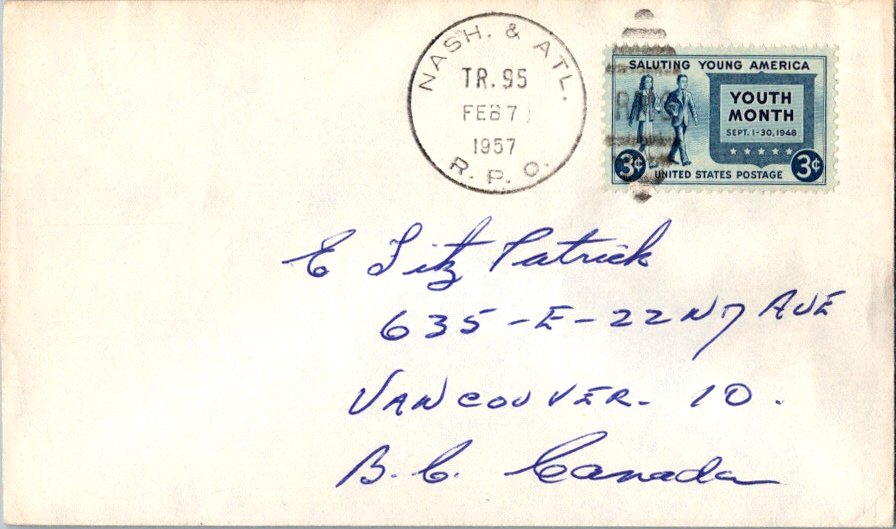 NASH. & ATL.
TR. 95
FEB 7
1957
R. P. O.
SALUTING YOUNG AMERICA
YOUTH
MONTH
SEPT. 1-30, 1948
3¢
3¢
UNITED STATES POSTAGE
E Fitz Patrick
635-E-22ND AVE
VANCOUVER - 10.
B.C. Canada